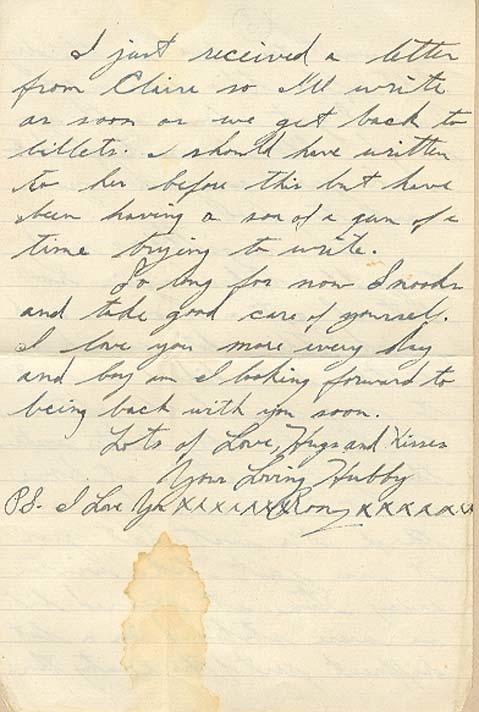 I just received a letter
from Claire so I'll write
as soon as we get back to
billets. I should have written
to her before this but have
been having a son of a gun of a
time trying to write.
So long for now Snooks
and take good care of yourself.
I love you more every day
and boy am I looking forward to
being back with you soon.
Lots of Love, Hugs and Kisses
Your Loving Hubby
PS. I Love You xxxxxxx Ron xxxxxx